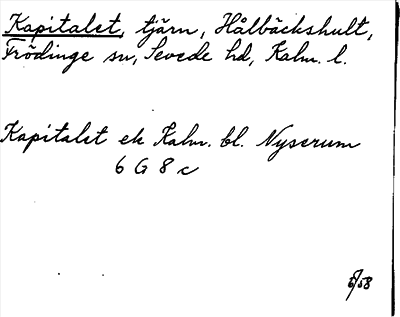 Kapitalet, tjärn, Hålbäckshult,
Frödinge sn, Sevede hd, Kalm. l.
Kapitalet ek Kalm. bl. Nyserum
6 G 8 c
58